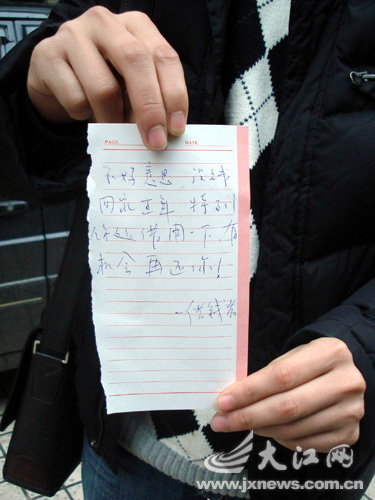 PAGE DATE
不好意思,没钱
回家过年 特到
你处借用一下,有
机会再还你!
—借钱者
大江网
www.jxnews.com.cn